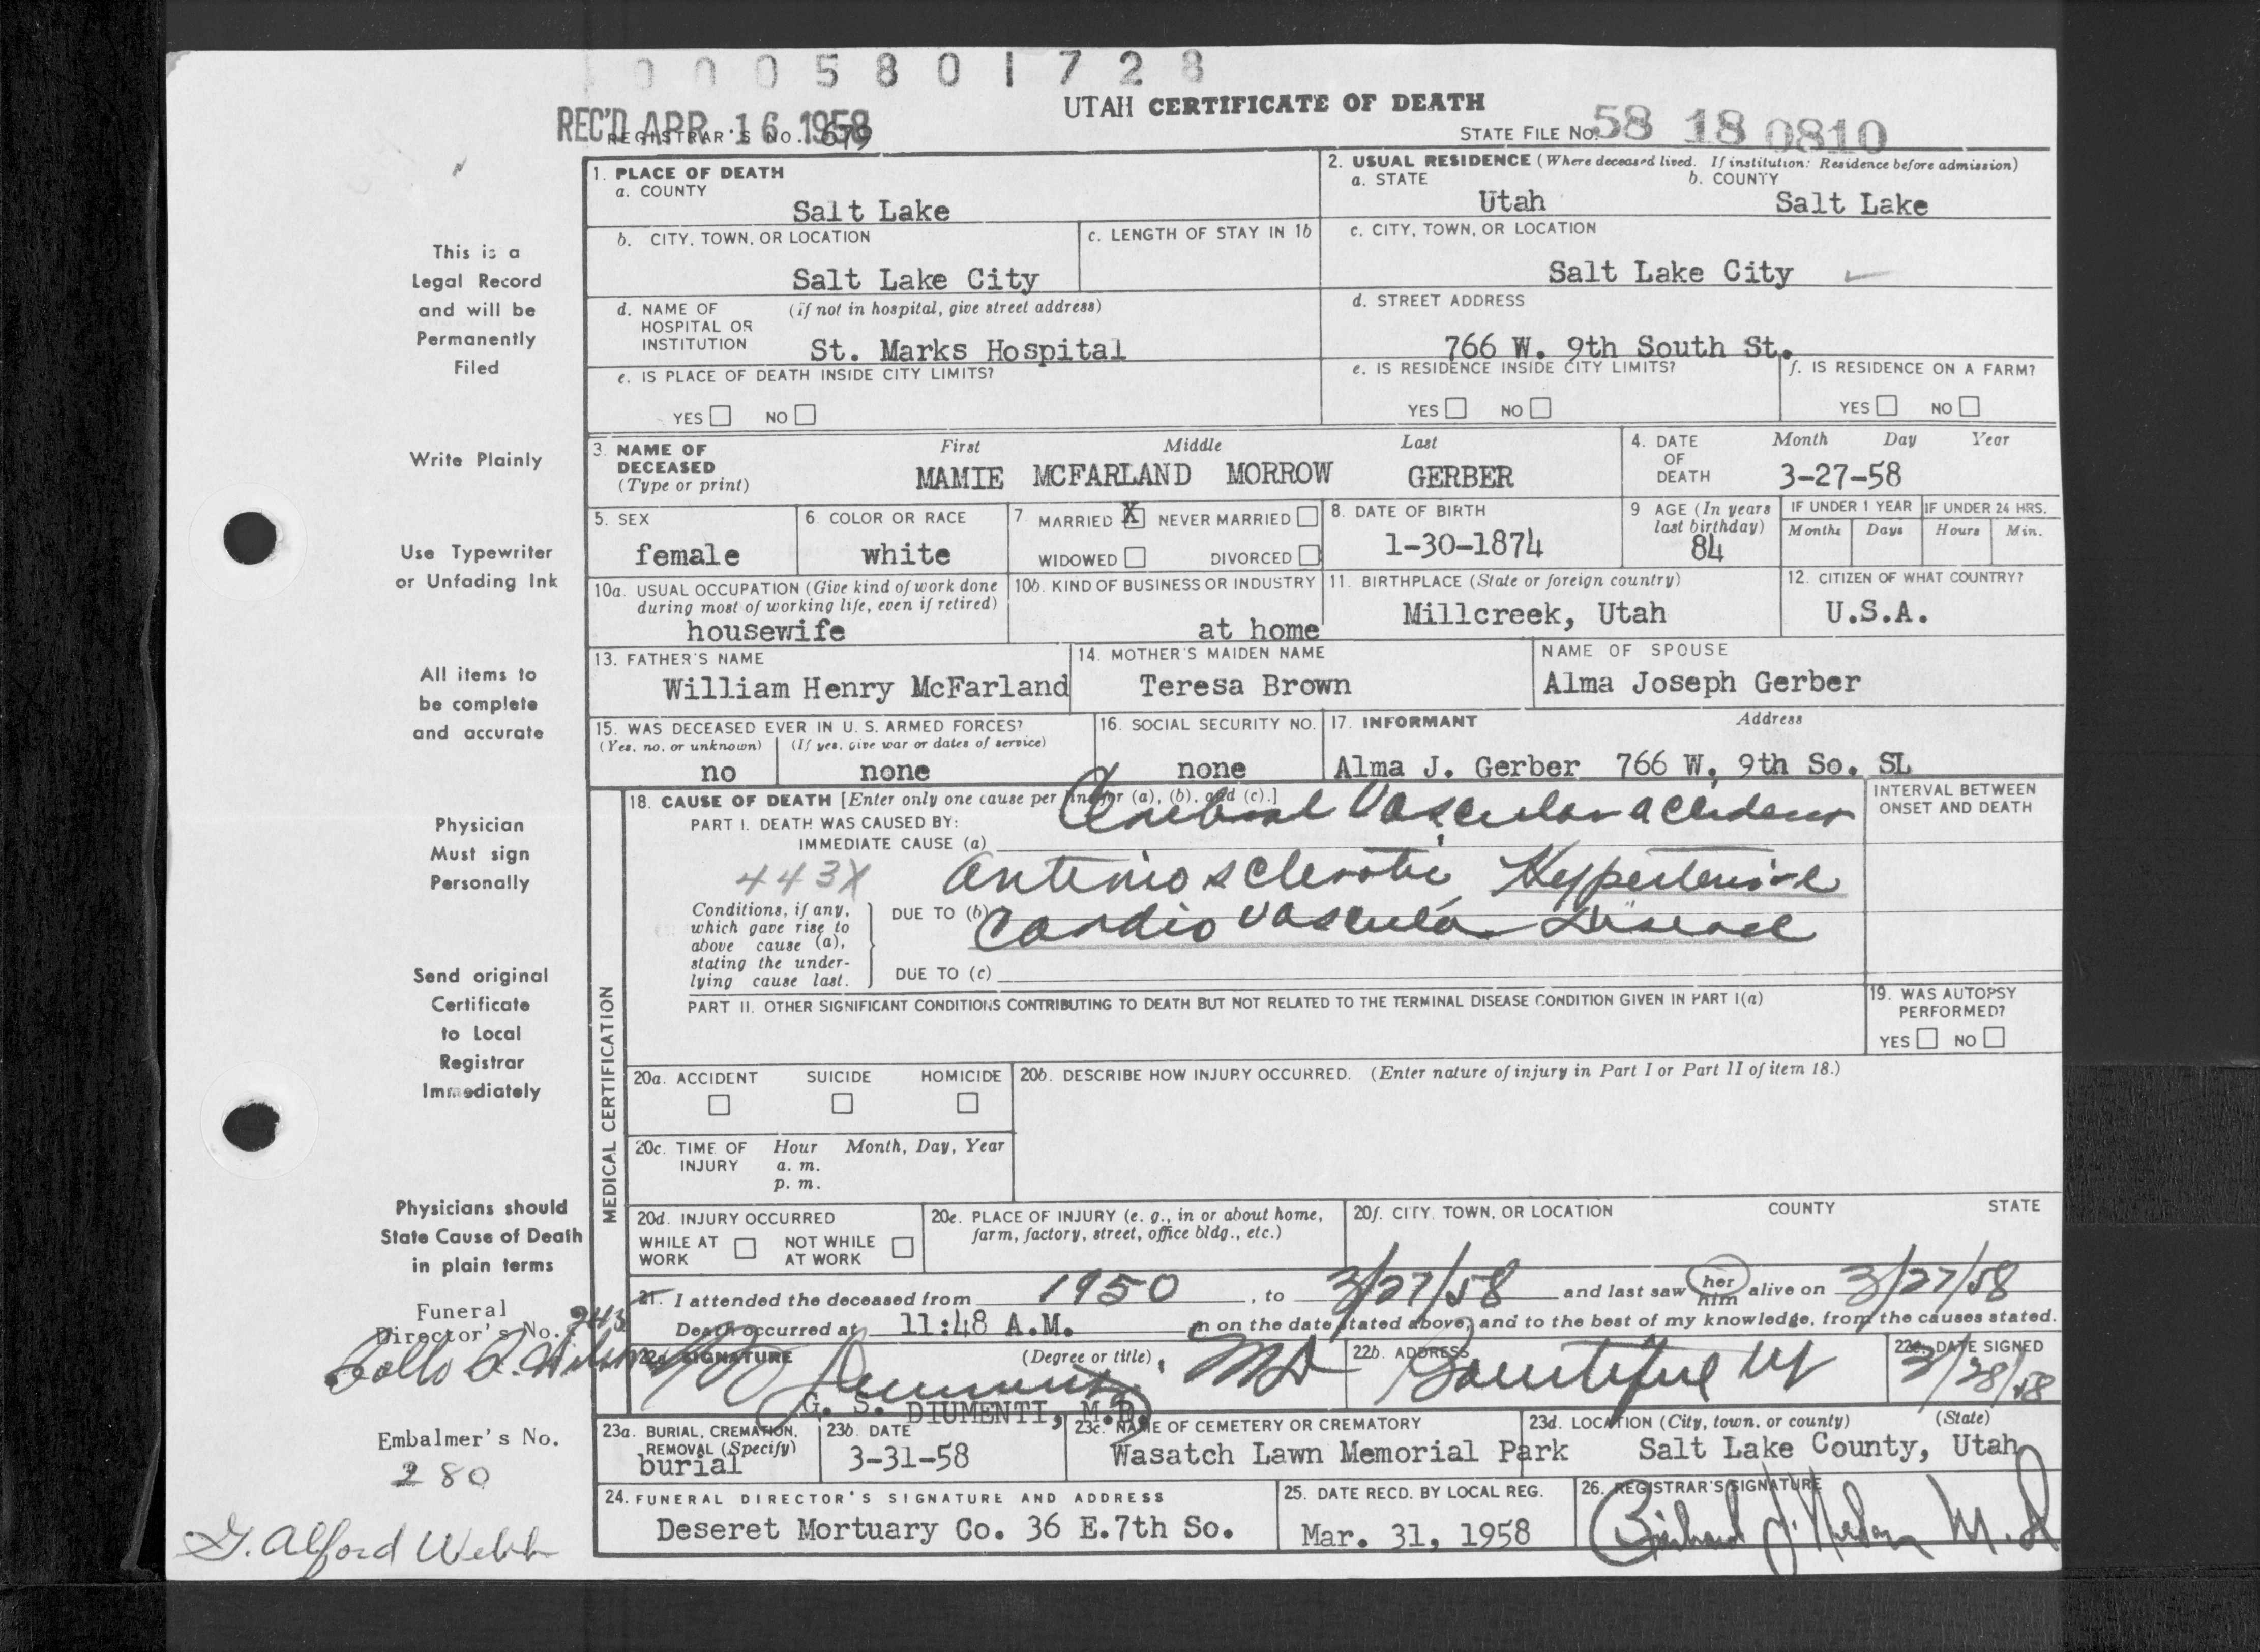 0 0 0 5 8 0 1 7 2 8
UTAH CERTIFICATE OF DEATH
REC'D APR 16 1958
REGISTRAR'S NO. 679
STATE FILE NO. 58 18 0810
1. PLACE OF DEATH
a. COUNTY
Salt Lake
2. USUAL RESIDENCE (Where deceased lived. If institution: Residence before admission)
a. STATE b. COUNTY
Utah Salt Lake
b. CITY, TOWN, OR LOCATION
Salt Lake City
c. LENGTH OF STAY IN 1b
c. CITY, TOWN, OR LOCATION
Salt Lake City
d. NAME OF HOSPITAL OR INSTITUTION (if not in hospital, give street address)
St. Marks Hospital
d. STREET ADDRESS
766 W. 9th South St.
e. IS PLACE OF DEATH INSIDE CITY LIMITS?
YES NO
e. IS RESIDENCE INSIDE CITY LIMITS?
YES NO
f. IS RESIDENCE ON A FARM?
YES NO
3. NAME OF DECEASED (Type or print)
First Middle Last
MAMIE MCFARLAND MORROW GERBER
4. DATE OF DEATH Month Day Year
3-27-58
5. SEX
female
6. COLOR OR RACE
white
7 MARRIED X NEVER MARRIED
WIDOWED DIVORCED
8. DATE OF BIRTH
1-30-1874
9 AGE (In years last birthday)
84
IF UNDER 1 YEAR IF UNDER 24 HRS.
Months Days Hours Min.
10a. USUAL OCCUPATION (Give kind of work done during most of working life, even if retired)
housewife
10b. KIND OF BUSINESS OR INDUSTRY
at home
11. BIRTHPLACE (State or foreign country)
Millcreek, Utah
12. CITIZEN OF WHAT COUNTRY?
U.S.A.
13. FATHER'S NAME
William Henry McFarland
14. MOTHER'S MAIDEN NAME
Teresa Brown
NAME OF SPOUSE
Alma Joseph Gerber
15. WAS DECEASED EVER IN U. S. ARMED FORCES?
(Yes, no, or unknown) (If yes, give war or dates of service)
no none
16. SOCIAL SECURITY NO.
none
17. INFORMANT Address
Alma J. Gerber 766 W. 9th So. SL
18. CAUSE OF DEATH [Enter only one cause per line for (a), (b), and (c).]
PART I. DEATH WAS CAUSED BY:
IMMEDIATE CAUSE (a)
Cerebral Vascular accident
443X
Arteriosclerotic Hypertensive
DUE TO (b)
Cardio Vascular Disease
Conditions, if any, which gave rise to above cause (a), stating the underlying cause last.
DUE TO (c)
INTERVAL BETWEEN ONSET AND DEATH
PART II. OTHER SIGNIFICANT CONDITIONS CONTRIBUTING TO DEATH BUT NOT RELATED TO THE TERMINAL DISEASE CONDITION GIVEN IN PART I(a)
19. WAS AUTOPSY PERFORMED?
YES NO
MEDICAL CERTIFICATION
20a. ACCIDENT SUICIDE HOMICIDE
20b. DESCRIBE HOW INJURY OCCURRED. (Enter nature of injury in Part I or Part II of item 18.)
20c. TIME OF INJURY Hour Month, Day, Year
a. m.
p. m.
20d. INJURY OCCURRED
WHILE AT WORK NOT WHILE AT WORK
20e. PLACE OF INJURY (e. g., in or about home, farm, factory, street, office bldg., etc.)
20f. CITY, TOWN, OR LOCATION COUNTY STATE
21. I attended the deceased from 1950, to 3/27/58 and last saw her him alive on 3/27/58
Death occurred at 11:48 A.M. m on the date stated above; and to the best of my knowledge, from the causes stated.
22a. SIGNATURE (Degree or title)
Diumenti, MD
G. S. DIUMENTI, M.D.
22b. ADDRESS
Bountiful Ut
22c. DATE SIGNED
3/28/58
23a. BURIAL, CREMATION, REMOVAL (Specify)
burial
23b. DATE
3-31-58
23c. NAME OF CEMETERY OR CREMATORY
Wasatch Lawn Memorial Park
23d. LOCATION (City, town, or county) (State)
Salt Lake County, Utah
24. FUNERAL DIRECTOR'S SIGNATURE AND ADDRESS
Deseret Mortuary Co. 36 E.7th So.
25. DATE RECD. BY LOCAL REG.
Mar. 31, 1958
26. REGISTRAR'S SIGNATURE
M.D
This is a
Legal Record
and will be
Permanently
Filed
Write Plainly
Use Typewriter
or Unfading Ink
All items to
be complete
and accurate
Physician
Must sign
Personally
Send original
Certificate
to Local
Registrar
Immediately
Physicians should
State Cause of Death
in plain terms
Funeral
Director's No. 243
Embalmer's No.
280
G. Alford Webb